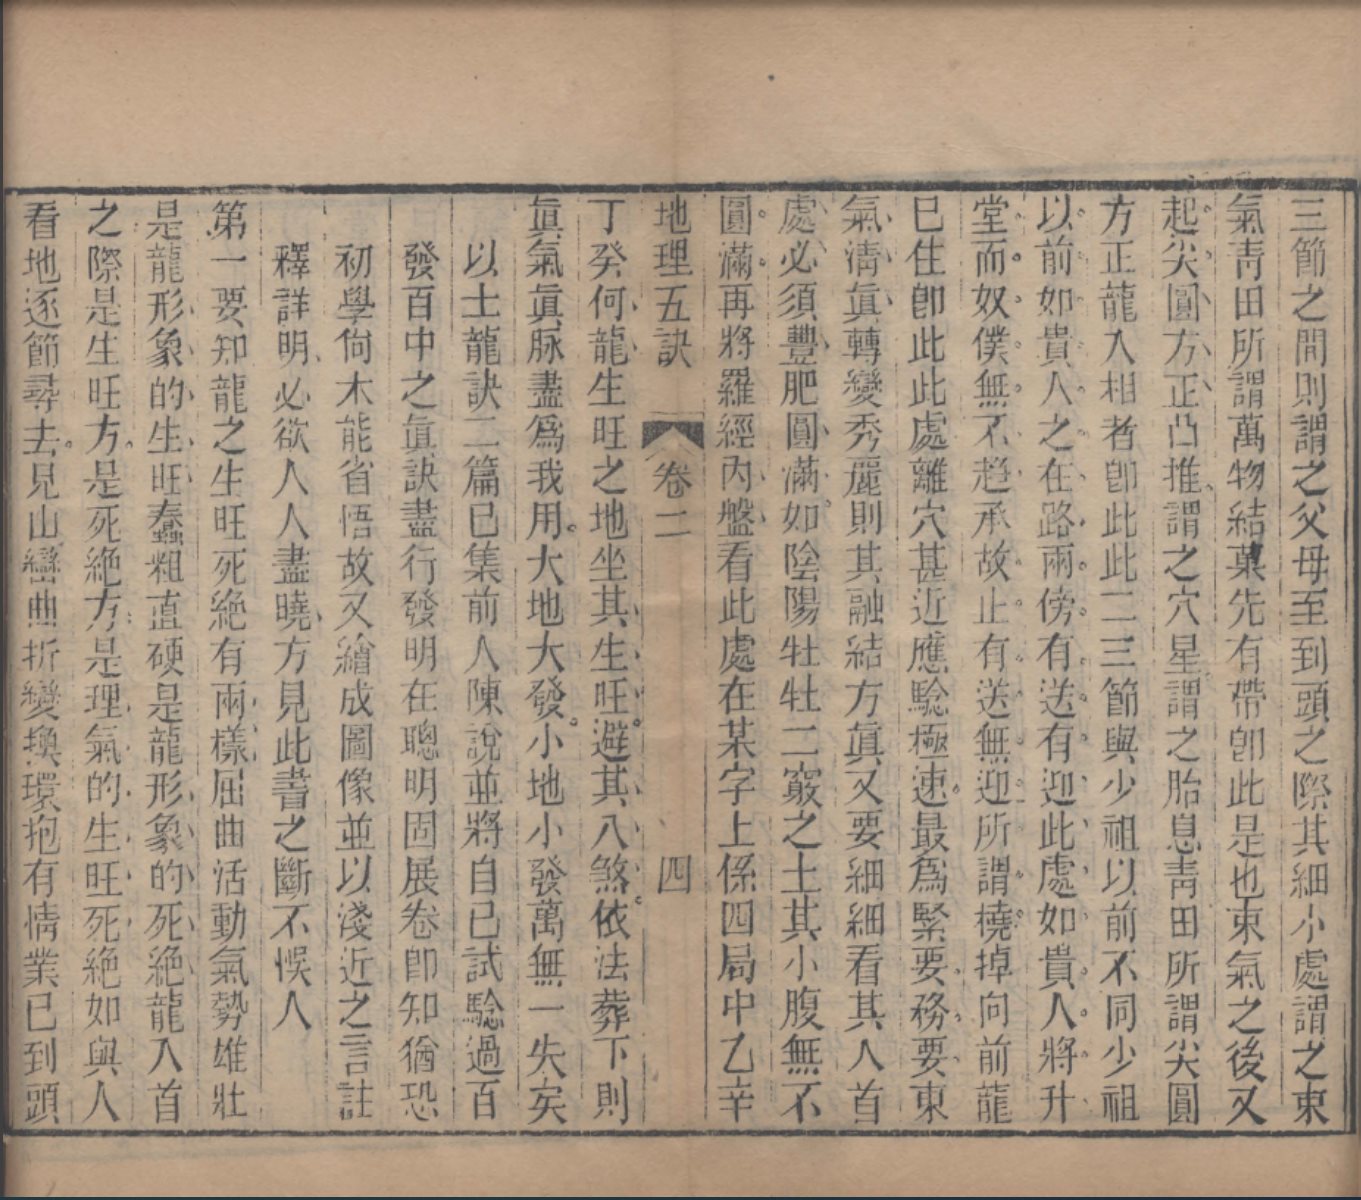 三節之間則謂之父母至到頭之際其細小處謂之束
氣靑田所謂萬物結菓先有帶卽此是也束氣之後又
起尖圓方正凸推謂之穴星謂之胎息靑田所謂尖圓
方正龍入相者卽此此二三節與少祖以前不同少祖
以前如貴人之在路兩傍有送有迎此處如貴人將升
堂而奴僕無不趨承故止有送無迎所謂橈掉向前龍
已住卽此此處離穴甚近應驗極速最爲緊要務要東
氣清眞轉變秀麗則其融結方眞又要細細看其入首
處必須豐肥圓滿如陰陽牡牡二竅之土其小腹無不
圓滿再將羅經內盤看此處在某字上係四局中乙辛
地理五訣 卷二 四
丁癸何龍生旺之地坐其生旺避其八煞依法葬下則
眞氣眞脉盡爲我用大地大發小地小發萬無一失矣
以士龍訣二篇已集前人陳說並將自已試驗過百
發百中之眞訣盡行發明在聰明固展卷卽知猶恐
初學尙木能省悟故又繪成圖像並以淺近之言註
釋詳明必欲人人盡曉方見此書之斷不悞人
第一要知龍之生旺死絶有兩樣屈曲活動氣勢雄壯
是龍形象的生旺蠢粗直硬是龍形象的死絶龍入首
之際是生旺方是死絶方是理氣的生旺死絶如與人
看地逐節尋去見山巒曲折變換環抱有情業已到頭